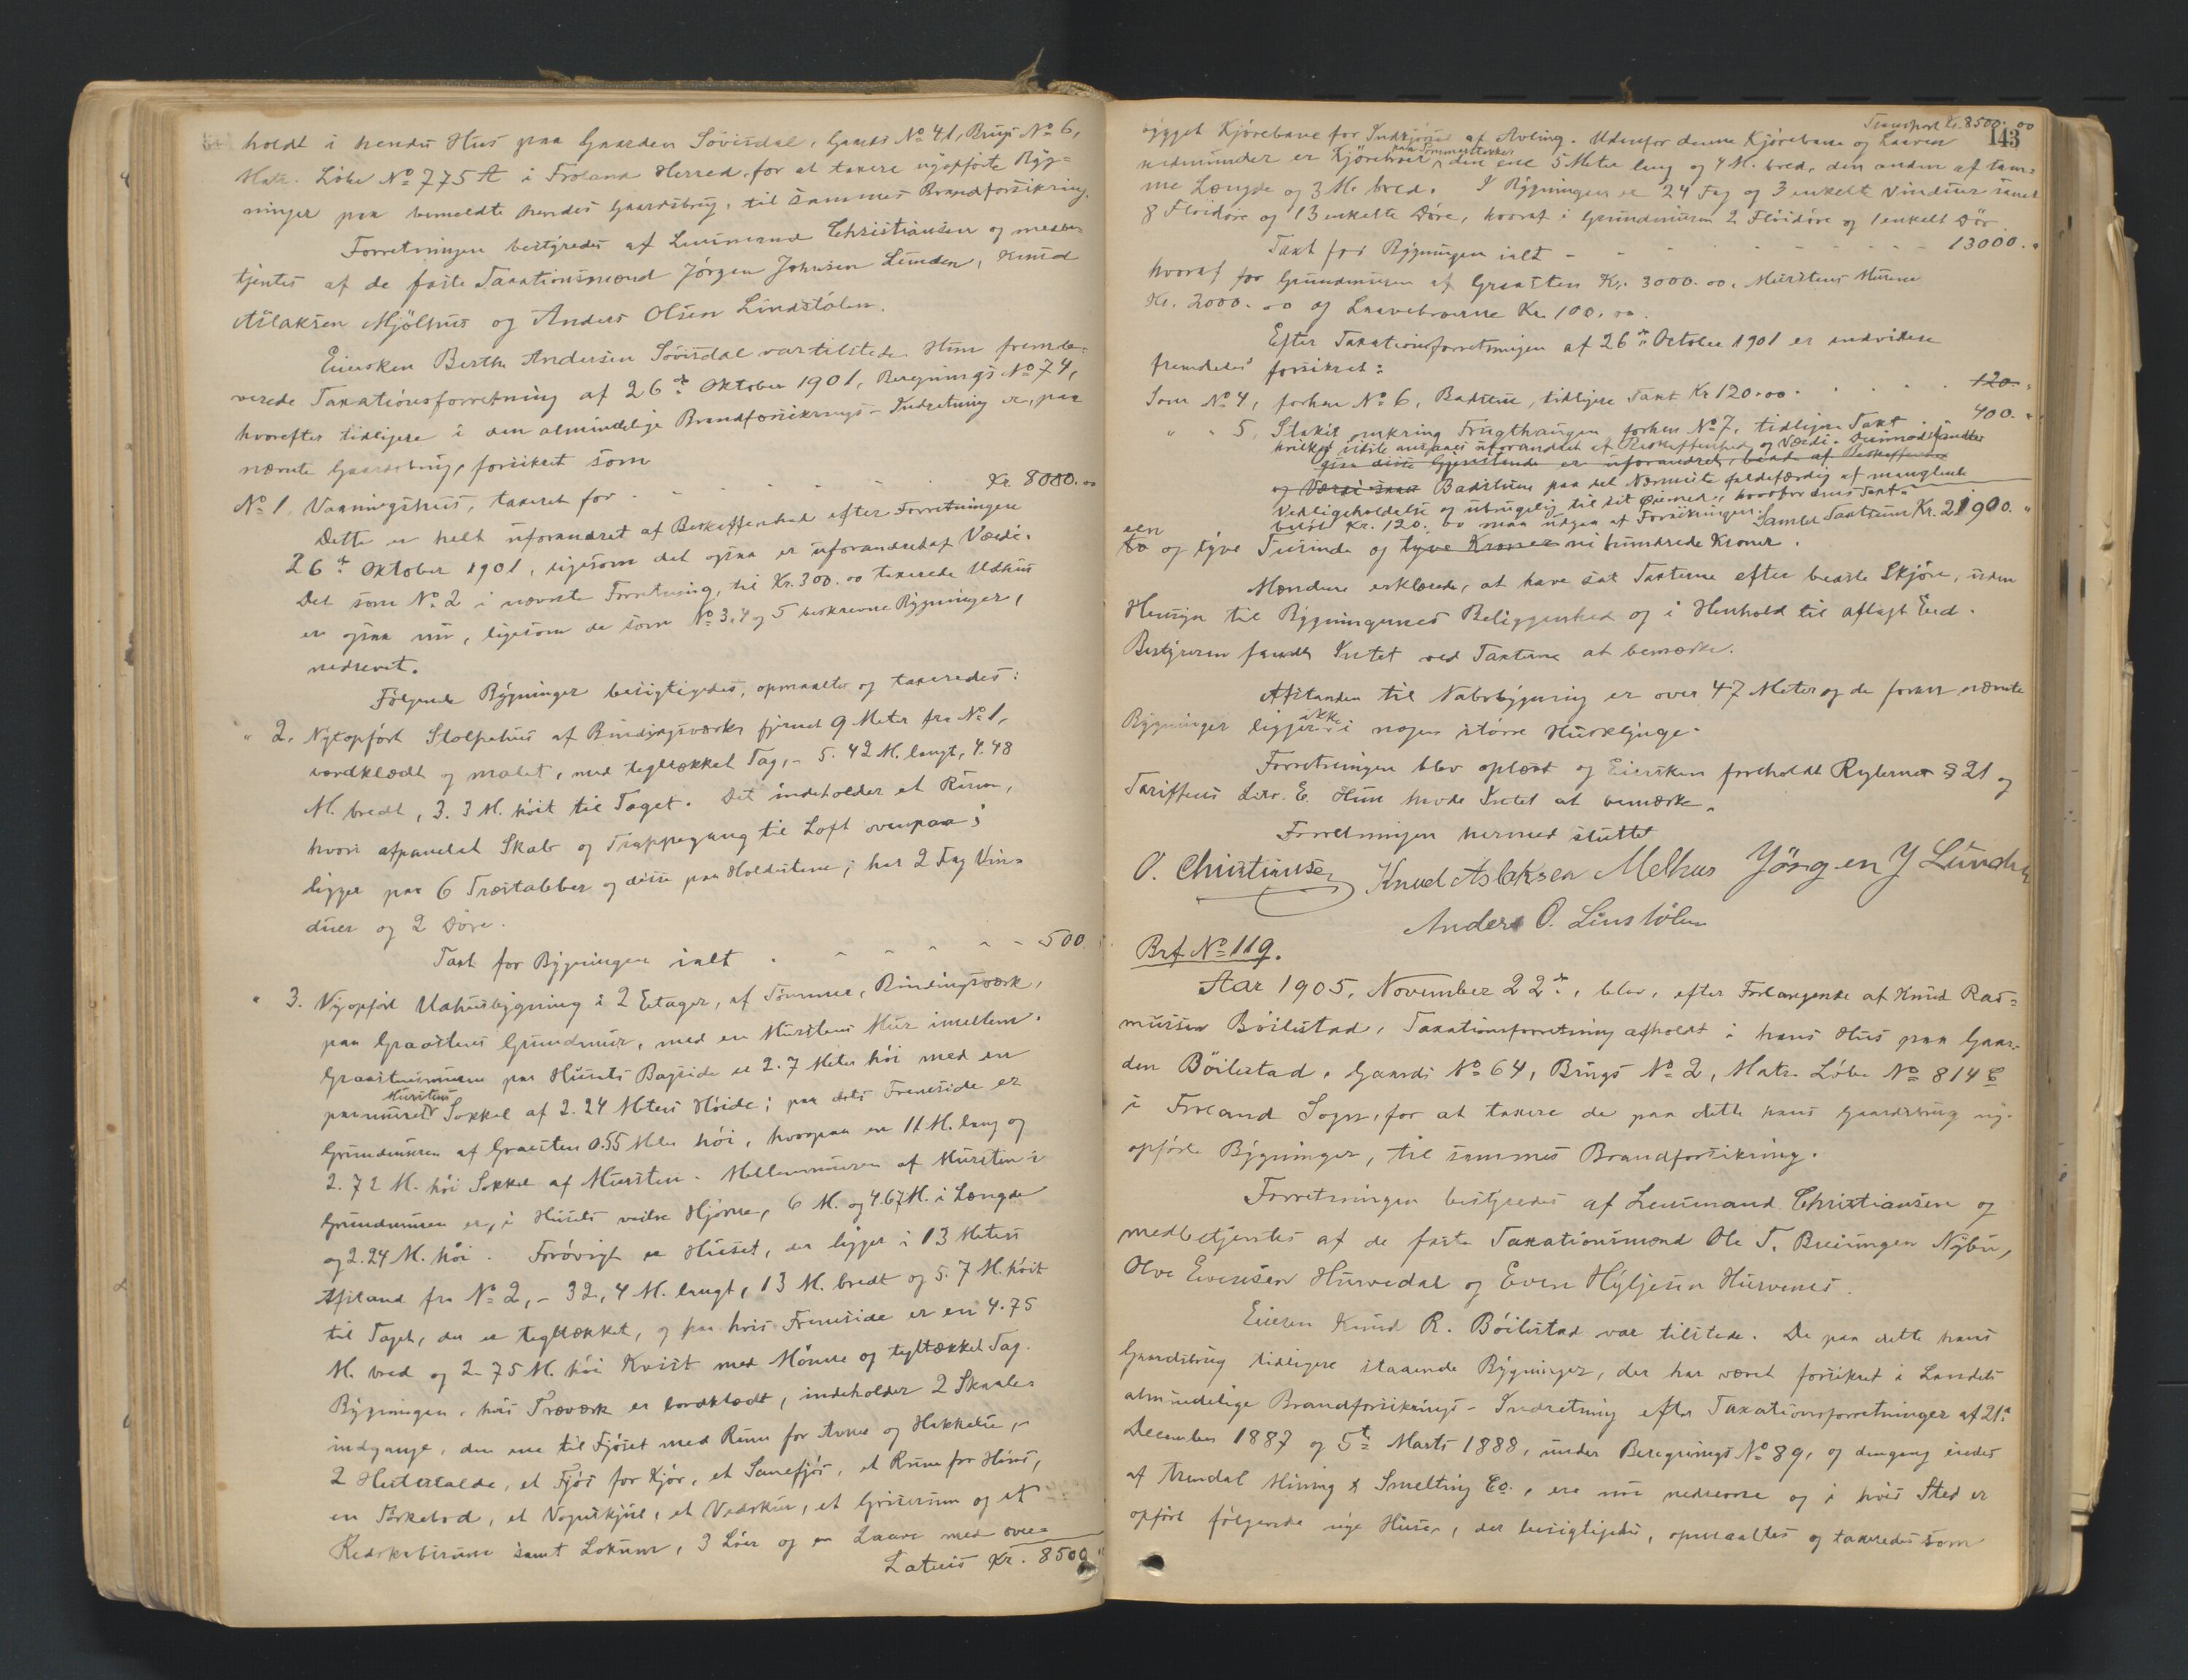 holdt i hendes Hus paa Gaarden Sövisdal, Gaards No 41, Brugs No 6,
Matr. Löbe No 775 A i Froland Herred, for at taxere nyopförte Byg-
ninger paa bemeldte hendes Gaardsbrug, til sammes Brandforsikring.
Forretningen bestyredes af Lensmand Christiansen og medbe-
tjentes af de faste Taxationsmænd Jörgen Johnsen Lunden, Knud
Aslaksen Mjölhus og Anders Olsen Lindstölen.
Eiersken Berthe Andersen Sövisdal var tilstede. Hun fremle-
verede Taxationsforretning af 26de Oktober 1901, Beregnings No 74,
hvorefter tidligere i den almindelige Brandforsikrings-Indretning er, paa
nævnte Gaardsbrug, forsikret som
No 1, Vaaningshus, taxeret for . . . . . Kr. 8000.00
Dette er helt uforandret af Beskaffenhed efter Forretningen
26de Oktober 1901, ligesom det ogsaa er uforandret af Værdi.
Det som No 2 i nævnte Forretning, til Kr. 300.00 taxerede Udhus
er ogsaa nu, ligesom de som No 3, 4 og 5 beskrevne Bygninger,
nedrevet.
Fölgende Bygninger besigtigedes, opmaaltes og taxeredes:
" 2. Nyopfört Stolpehus af Bindingsværk, fjernet 9 Meter fra No 1,
bordklædt og malet, med teglækket Tag, - 5.42 M. langt, 4.48
M. bredt, 3.3 M. höit til Taget. Det indeholder et Rum,
hvori afpanelet Skab og Trappegang til Loft ovenpaa;
ligger paa 6 Træstabber og disse paa Holdstene; har 2 Fag Vin-
duer og 2 Döre.
Taxt for Bygningen ialt . - - - - - 500.
" 3. Nyopfört Udhusbygning i 2 Etager, af Tömmer, Bindingsværk,
paa Graastens Grundmur, med en Murstens Mur imellem.
Graastensmuren paa Husets Bagside er 2.7 Meter höi med en
Murstens
paamuret Sokkel af 2.24 Meters Höide; paa dets Fremside er
Grundmuren af Graasten 0.55 Meter höi, hvorpaa en 11 M. lang og
2.72 M. höi Sokkel af Mursten. Mellemmuren af Mursten i
Grundmuren er, i Husets Hjörne, 6 M. og 4.67 M. i Længde
og 2.24 M. höi. Forövrigt er Huset, der ligger i 13 Meters
Afstand fra No 2, - 32,4 M. langt, 13 M. bredt og 5.7 M. höit
til Taget, der er teglækket, og paa hvis Fremside er en 4.75
M. bred og 2.75 M. höi Kvist med Mönne og teglækket Tag.
Bygningen, hvis Træværk er bordklædt, indeholder 2 Skaale-
indgange, den ene til Fjöset med Rum for Avner og Hakkelse, -
2 Hestestalde, et Fjös for Kjör, et Sauefjös, et Rum for Höns,
en Tærkebod, et Vognskjul, et Vedskur, et Griserum og et
Redskabsrum samt Lokum, 3 Löer og en Laave med over-
Latus Kr. 8500
Transport Kr. 8500.00
143
bygget Kjörebane for Indkjörsel af Avling. Udenfor denne Kjörebane og Laaven
paa Tömmerstokker
nedenunder er Kjörebroer, den ene 5 Meter lang og 4 M. bred, den anden af sam-
me Længde og 3 M. bred. I Bygningen er 24 Fag og 3 enkelte Vinduer samt
8 Flöidöre og 13 enkelte Döre, hvoraf i Grundmuren 2 Flöidöre og 1 enkelt Dör.
Taxt for Bygningen ialt - - - - - 13000."
hvoraf for Grundmuren af Graasten Kr. 3000.00, Murstens Murene
Kr. 2000.00 og Laavebroerne Kr. 100.00.
Efter Taxationsforretningen af 26de October 1901 er endvidere
fremdeles forsikret:
Som No 4, forhen No 6, Badstue, tidligere Taxt Kr 120.00. . . . 120.
" " 5, Stakit omkring Frugthaugen forhen No 7, tidligere Taxt . 400."
hvilket sidste ansaaes uforandret af Beskaffenhed og Værdi. Derimod fandtes
disse Gjenstande er uforandret, baade af Beskaffenhed
og Værdi Badstuen paa det Nærmeste faldefærdig af manglende
Vedligeholdelse og ubrugelig til sit Öiemed, hvorfor dens Taxt-
belöb Kr. 120.00 maa udgaa af Forsikringen. Samlet Taxtsum Kr. 21900."
en
to og tyve Tusinde og tyve Kroner ni hundrede Kroner.
Mændene erklærede, at have sat Taxterne efter bedste Skjön, uden
Hensyn til Bygningernes Beliggenhed og i Henhold til aflagt Eed.
Bestyreren fandt Intet ved Taxterne at bemærke.
Afstanden til Nabobygning er over 47 Meter og de foran nævnte
ikke
Bygninger ligger i nogen större Husklynge.
Forretningen blev oplæst og Eiersken foreholdt Reglernes § 21 og
Tariffens Litr. E. Hun havde Intet at bemærke.
Forretningen hermed sluttet
O. Christiansen Knud Aslaksen Melhus Jörgen J Lunden
Anders O. Linstölen
Brf No 119.
Aar 1905, November 22de, blev, efter Forlangende af Knud Ras-
mussen Böilestad, Taxationsforretning afholdt i hans Hus paa Gaar-
den Böilestad, Gaards No 64, Brugs No 2, Matr. Löbe No 814 C
i Froland Sogn, for at taxere de paa dette hans Gaardsbrug ny-
opförte Bygninger, til sammes Brandforsikring.
Forretningen bestyredes af Lensmand Christiansen og
medbetjentes af de faste Taxationsmænd Ole T. Nybu,
Olve Evensen Hurvedal og Even Hurvenes.
Eieren Knud R. Böilestad var tilstede. De paa dette hans
Gaardsbrug tidligere staaende Bygninger, der har været forsikret i Landets
almindelige Brandforsikrings-Indretning efter Taxationsforretninger af 21de
December 1887 og 5te Marts 1888, under Beregnings No 89, og dengang eiedes
af Arendal Mining & Smelting Co., ere nu nedrevne og i hvis Sted er
opfört fölgende nye Huse, der besigtigedes, opmaaltes og taxeredes som